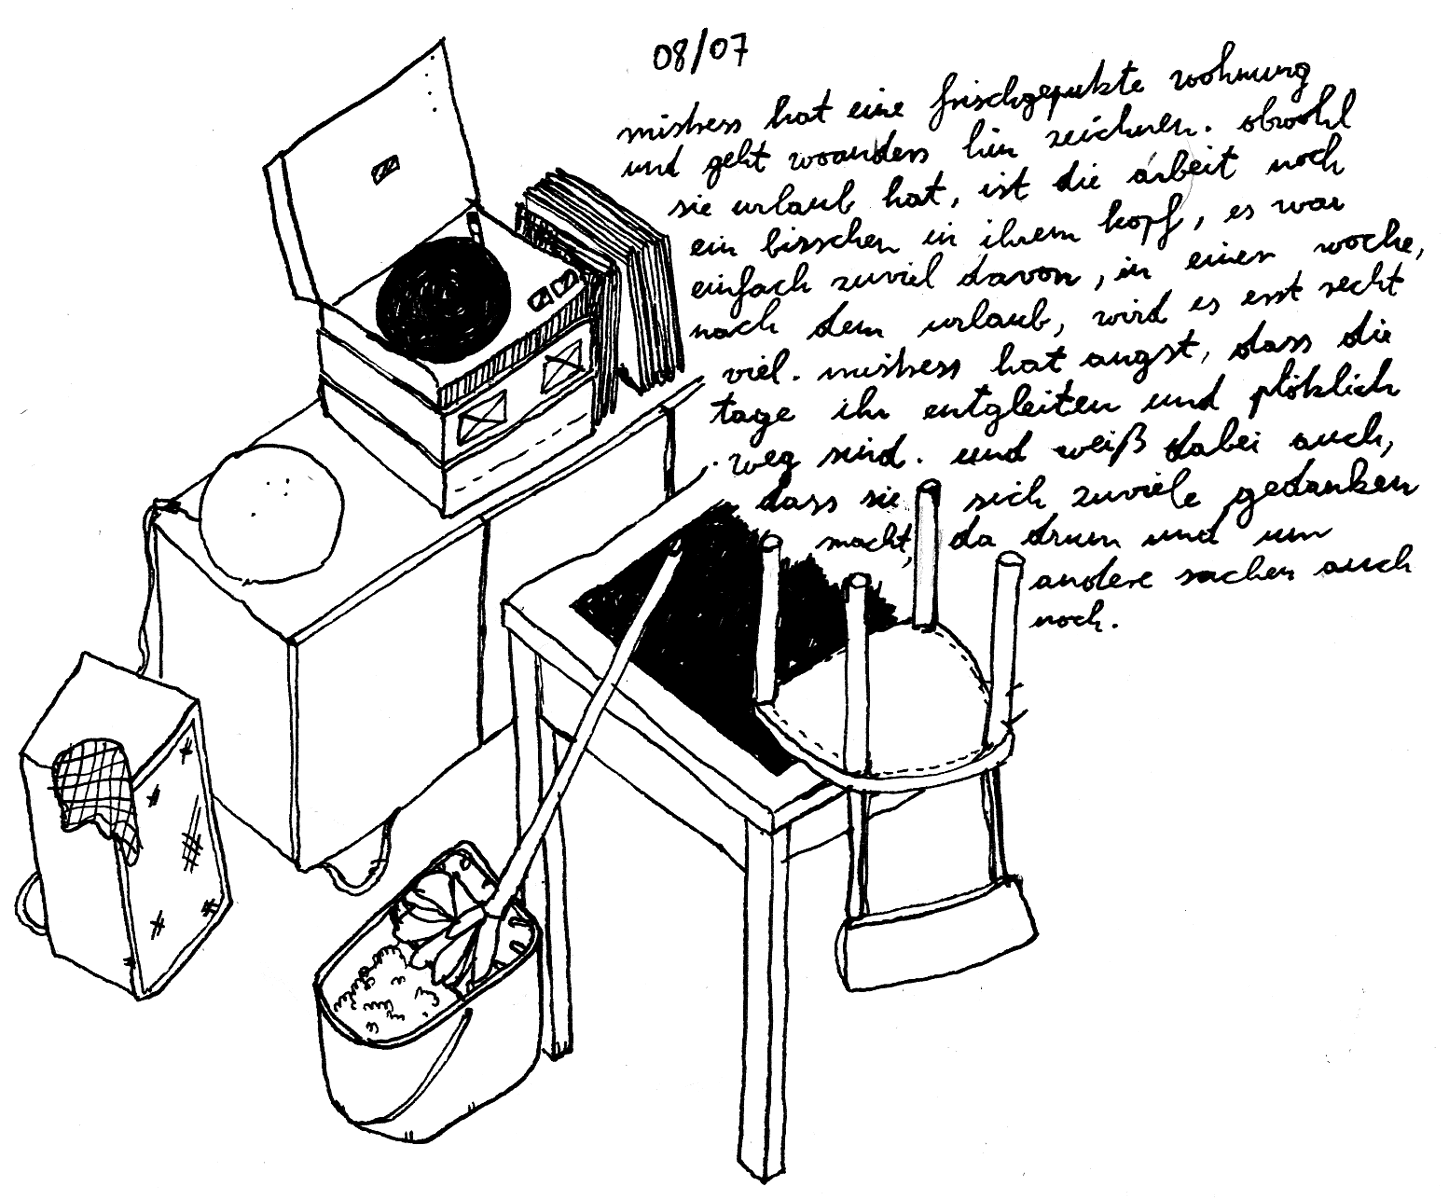 08/07
mistress hat eine frischgeputzte wohnung
und geht woanders hin zeichnen. obwohl
sie urlaub hat, ist die arbeit noch
ein bisschen in ihrem kopf, es war
einfach zuviel davon, in einer woche,
nach dem urlaub, wird es erst recht
viel. mistress hat angst, dass die
tage ihr entgleiten und plötzlich
weg sind. und weiß dabei auch,
dass sie sich zuviele gedanken
macht, da drum und um
andere sachen auch
noch.